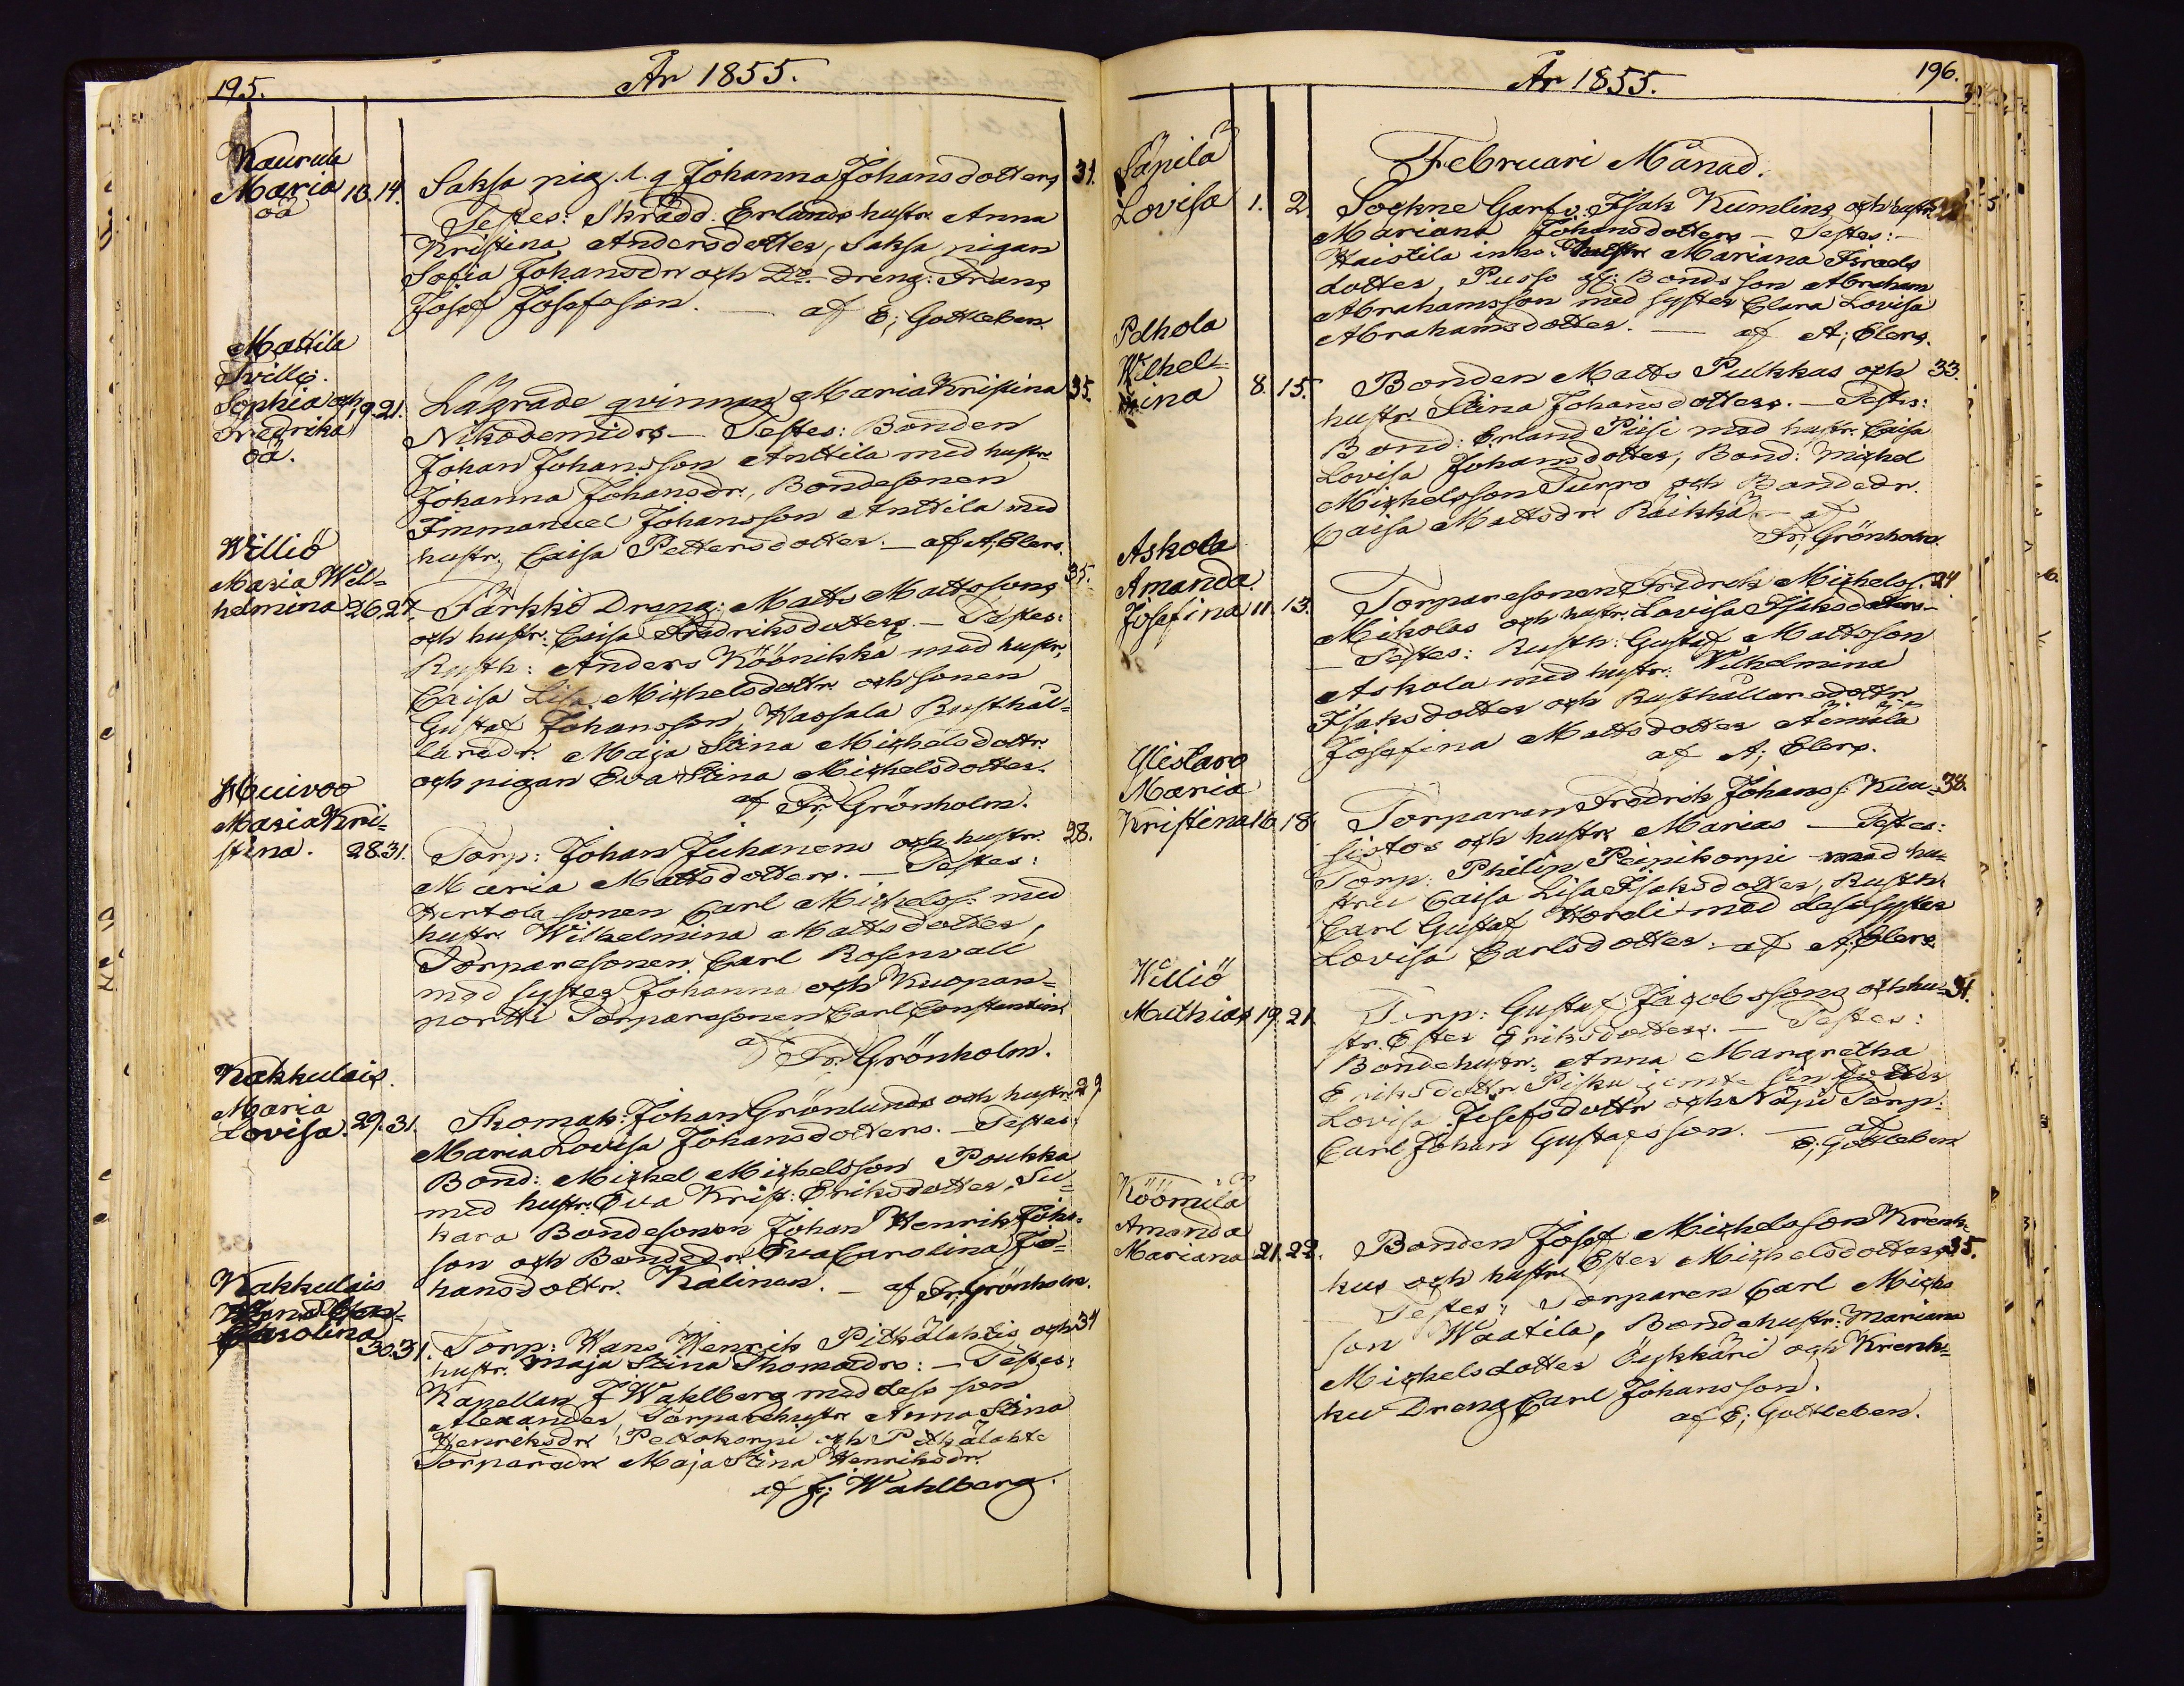 195.
År 1855.
Kaurula
Maria 13. 14. Saksa pig. l. q Johanna Johansdotters 31.
oä
Testes: Skrädd. Erlands hustr. Anna
Kristina Andersdotter, Saksa pigan
Sofia Johansdr och Do dreng: Frans
Josef Josefsson. — af E; Gottleben.
Mattila
Tvillg.
Sophia och 19. 21. Lägrade qvinnans Maria Kristina 35.
Fredrika
oä.
Nikodemidrs — Testes: Bonden
Johan Johansson Anttila med hustr.
Johanna Johansdr., Bondesonen
Immanuel Johansson Anttila med
hustr. Caisa Pettersdotter. — af A; Elers.
Williö
Maria Wil-
helmina 26. 27. Färkki Dreng: Matts Mattssons 35.
och hustr. Caisa Fredriksdotters. — Testes:
Rusth: Anders Köönikkä med hustr.
Caisa Lisa Michelsdottr. och sonen
Gustaf Johansson, Hassala Rusthål-
laredr. Maja Stina Michelsdottr.
och pigan Eva Stina Michelsdotter.
af Fr; Grönholm.
Huivoo
Maria Kri-
stina. 28. 31. Torp: Johan Juhanens och hustr. 28.
Maria Mattsdotters. — Testes:
Hertola sonen Carl Michelss. med
hustr. Wilhelmina Mattsdotter,
Torparesonen Carl Rosenvall
med syster Johanna och Kuopan-
portti Torparesonen Carl Constantin
af Fr. Grönholm.
Kakkulais.
Maria
Lovisa. 29. 31. Skomak: Johan Grönlunds och hustr. 29
Maria Lovisa Johansdotters. — Testes:
Bond: Michel Michelsson Poukka
med hustr. Eva Krist: Eriksdotter, Su-
kara Bondesonen Johan Henrik Johs-
son och Bondedr. Eva Carolina Jo-
hansdottr. Kalinen. — af Fr; Grönholm.
Kakkulais
Carolina
30. 31. Torp: Hans Henrik Pitkälahtis och 34
hustr. Maja Stina Thomasdrs: — Testes:
Kapellan J Wahlberg med dess son
Alexander, Torparehustr Anna Stina
Henriksdr Peltokorpi och Pitkälahte
Torparedr Maja Stina Henriksdr.
af J; Wahlberg.
År 1855.
196.
Februari Månad.
Säpilä
Lovisa 1. 2. Sockne Garfv. Isak Kumlins och hustr.
Mariana Johansdotters — Testes: —
Haistila inhs. hustr Mariana Israels
dotter, Pusso Bonds son Abraham
Abrahamsson med syster Clara Lovisa
Abrahamsdotter. — af A; Elers.
Polhola
Wilhel-
mina 8. 15. Bonden Matts Pulkkas och 33.
hustr Stina Johansdotters. — Testes:
Bond: Erland Piisi med hustr. Caisa
Lovisa Johansdotter, Bond: Michel
Michelsson Turro och Bondedr.
Caisa Mattsdr Raikkä — af
Fr; Grönholm.
Askola
Amanda
Josefina 11. 13. Torparesonen Fridrek Michelss. 24.
Mikolas och hustr. Lovisa Isaksdotters —
— Testes: Rusth: Gustaf Mattsson
Askola med hustr: Wilhelmina
Isaksdotter och Rusthållaredottr.
Josefina Mattsdotter Äimälä
af A; Elers.
Ylistaro
Maria
Kristina 16. 18. Torparen Fredrik Johans s: Kua- 38.
sistos och hustr Marias — Testes:
Torp: Philip Peipikorpi med hu-
stru Caisa Lisa Isaksdotter, Rusth.
Carl Gustaf Hordi med dess syster
Lovisa Carlsdotter. af A; Elers
Williö
Mathias 19. 21. Torp: Gustaf Jacobssons och hu- 31.
str. Ester Eriksdotters. — Testes:
Bondehustr. Anna Margretha
Eriksdottr Pisku jemte sin dotter
Lovisa Josefsdottr och Näpi Torp.
Carl Johan Gustafsson. — af
E; Gottleben
Köömilä
Amanda
Mariana 21. 22. Bonden Josef Michelsson Krenk-
kus och hustr Ester Michelsdotters 35.
Testes: Torparen Carl Michs
son Waatila, Bondehustr: Mariana
Michelsdotter Öykkäri och Krenk-
ku Dreng Carl Johansson.
af E; Gottleben.